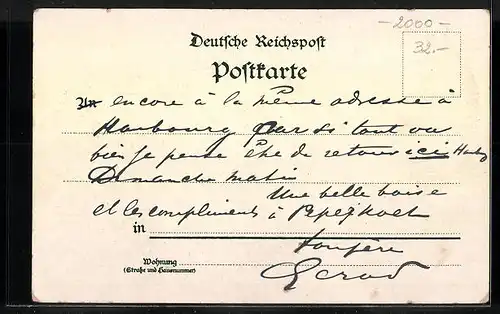 -2000-
32.-
Deutsche Reichspost
Postkarte
An encore à la même adresse à
Harbourg car si tout va
bien je pense être de retour ici Harbg
Dimanche matin
Une belle boise
et les compliments à
in
Wohnung
(Straße und Hausnummer)